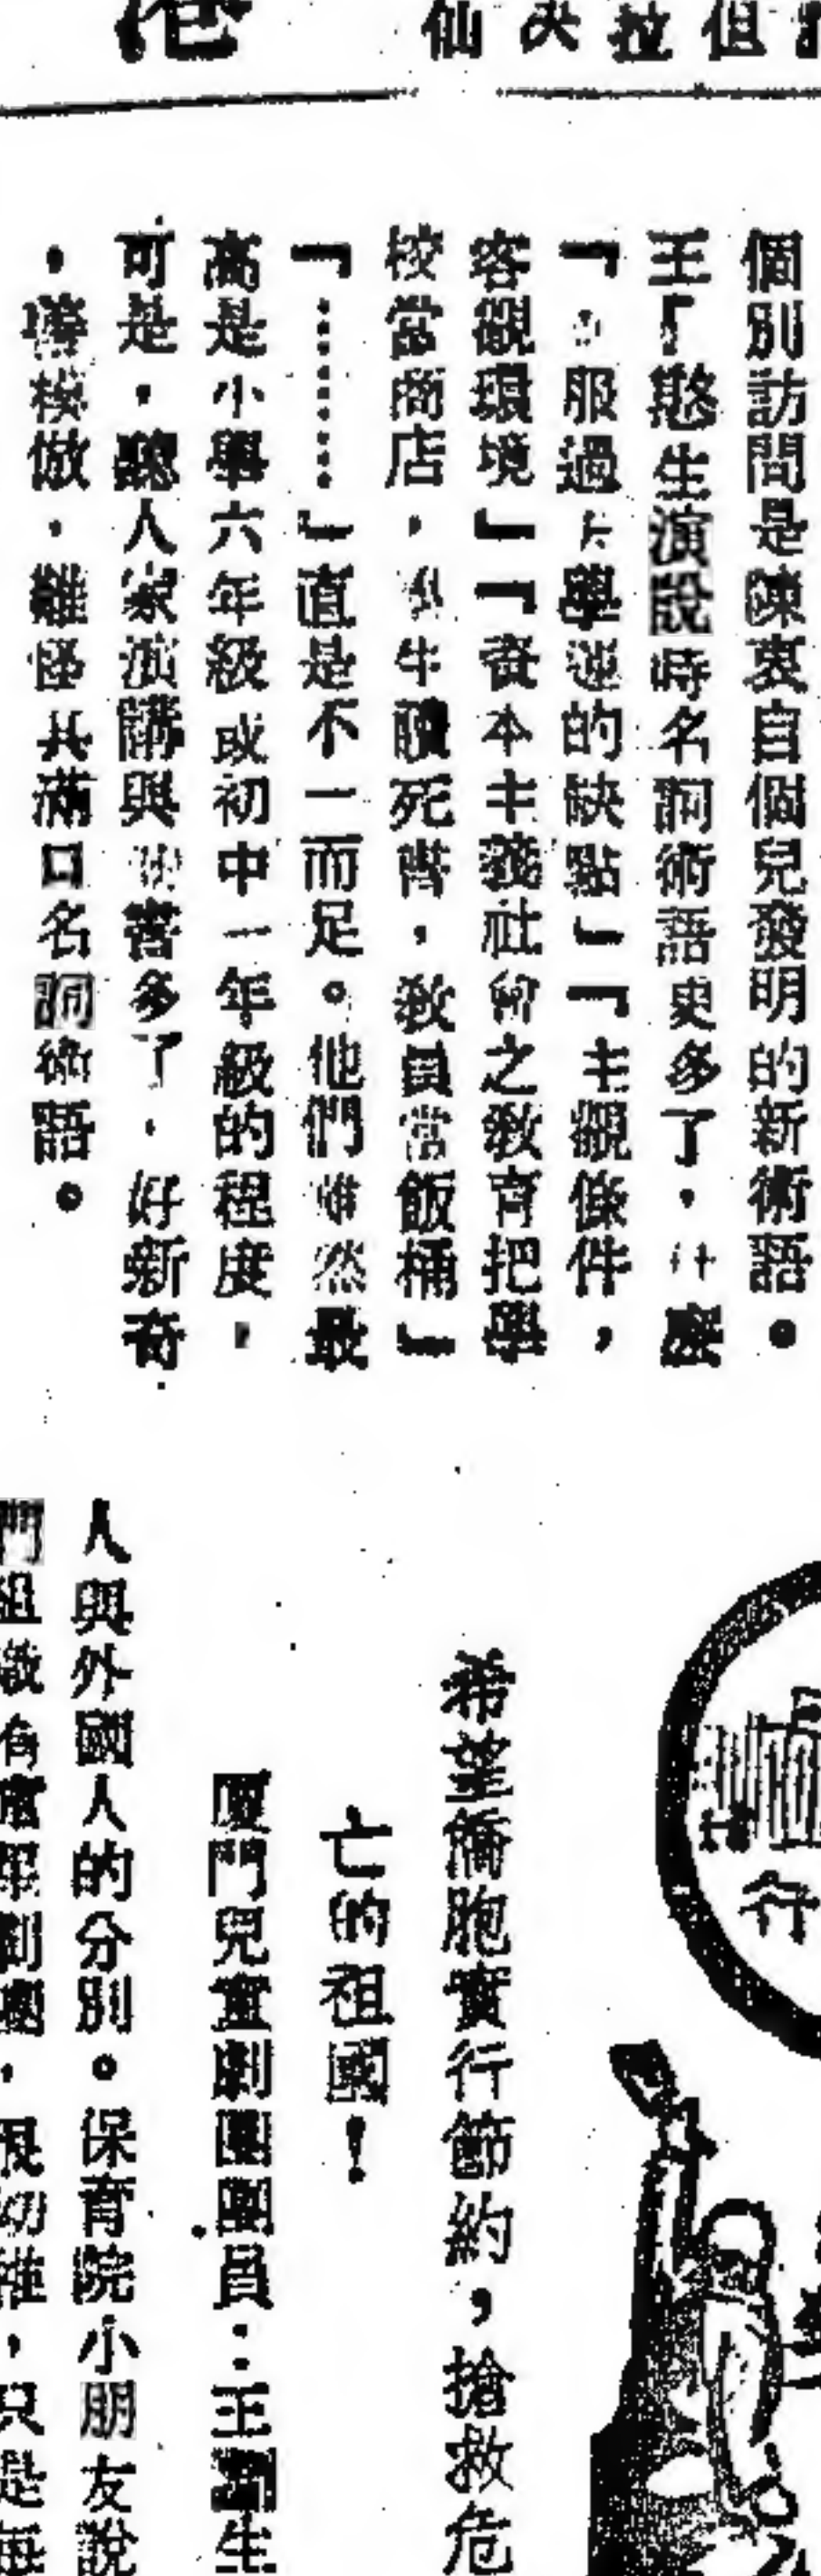 港
仙央拉伹
個別訪問是陳衷自個兒發明的新術語。
王「憨生演說時名詞術語更多了，什麼
「服過去學運的缺點」「主觀條件，
客觀環境」「資本主義社會之教育把學
校當商店，牛讀死書，教員當飯桶」
「………」直是不一而足。他們雖然最
高是小學六年級或初中一年級的程度，
可是，聽人家演講與讀書多了，好新奇
，善模倣，難怪其滿口名詞術語。
行
希望僑胞實行節約，搶救危
亡的祖國！
廈門兒童劇團團員：王生
人與外國人的分別。保育院小朋友說
們組織有劇團，很幼稚，只是每